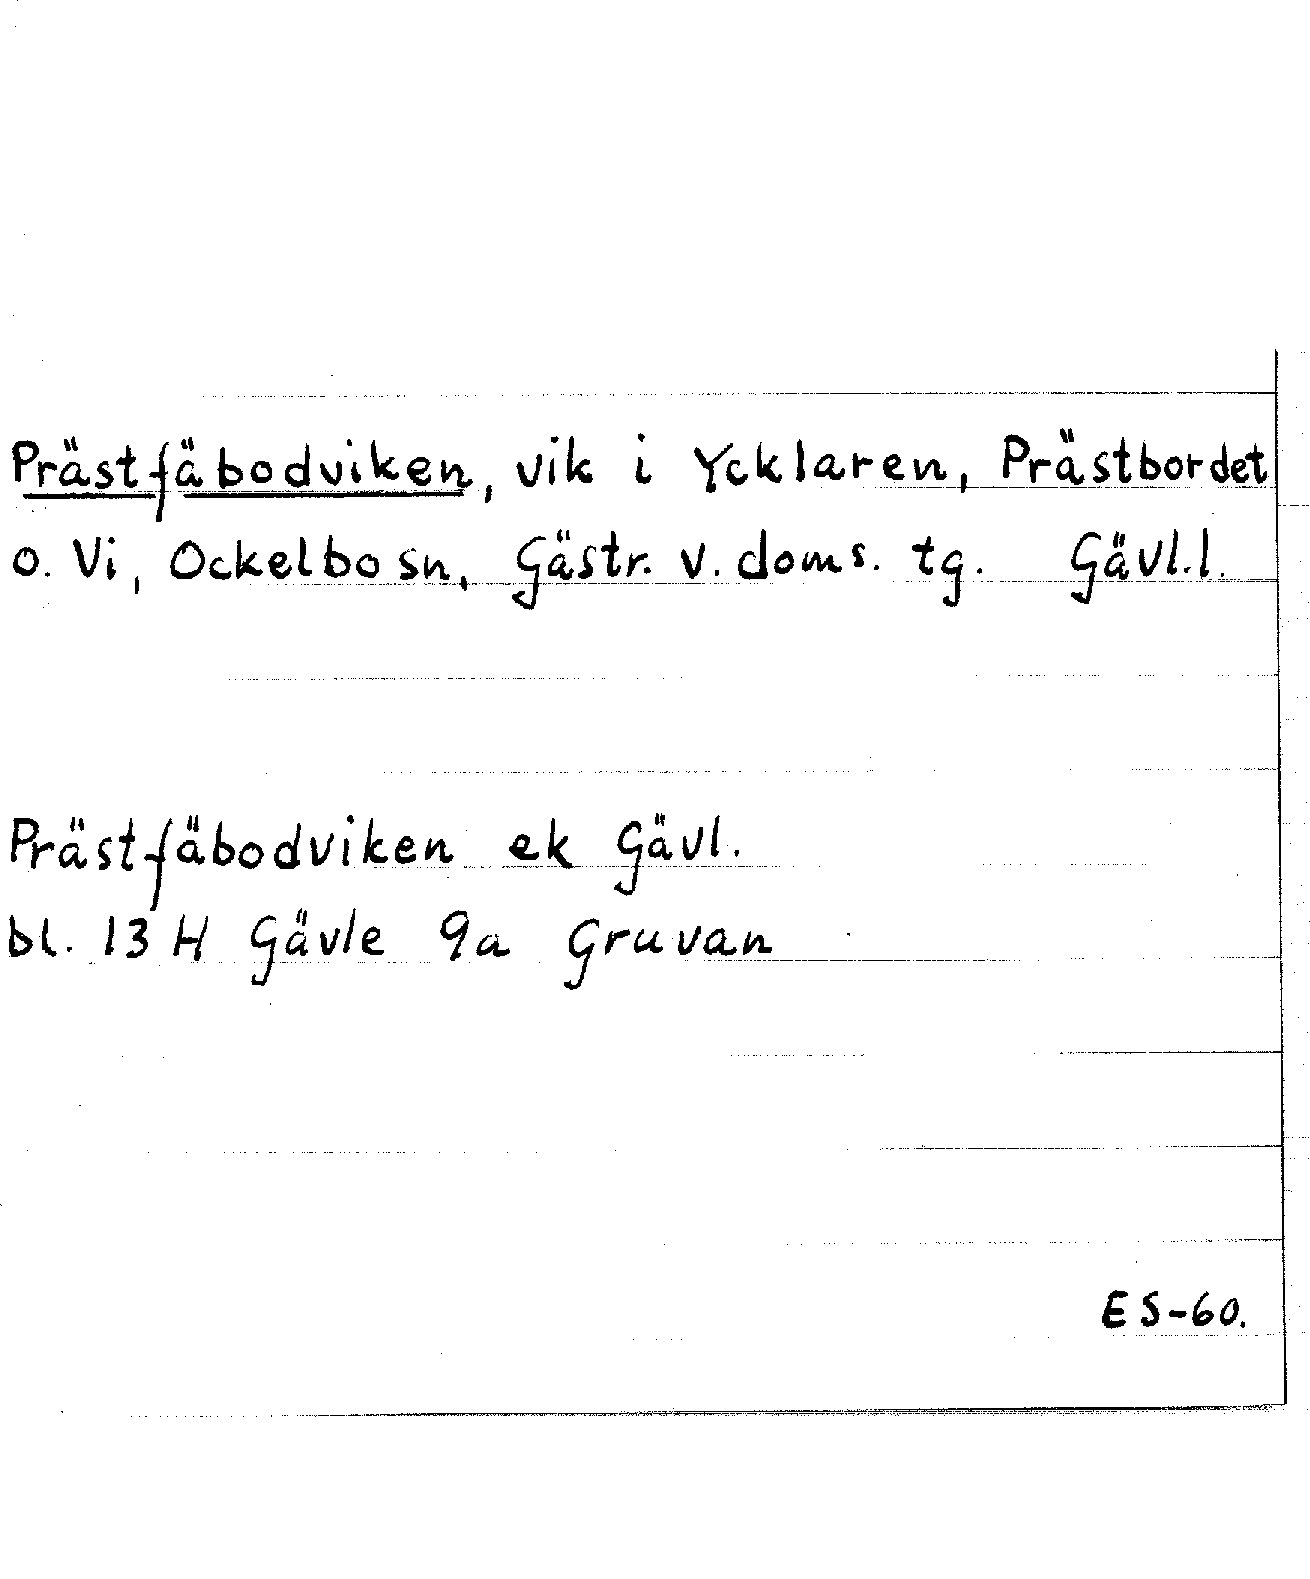 Prästfäbodviken, vik i Ycklaren, Prästbordet
o. Vi, Ockelbo sn, Gästr. v. doms. tg. Gävl.l.
Prästfäbodviken ek Gävl.
bl. 13 H Gävle 9a Gruvan
ES-60.